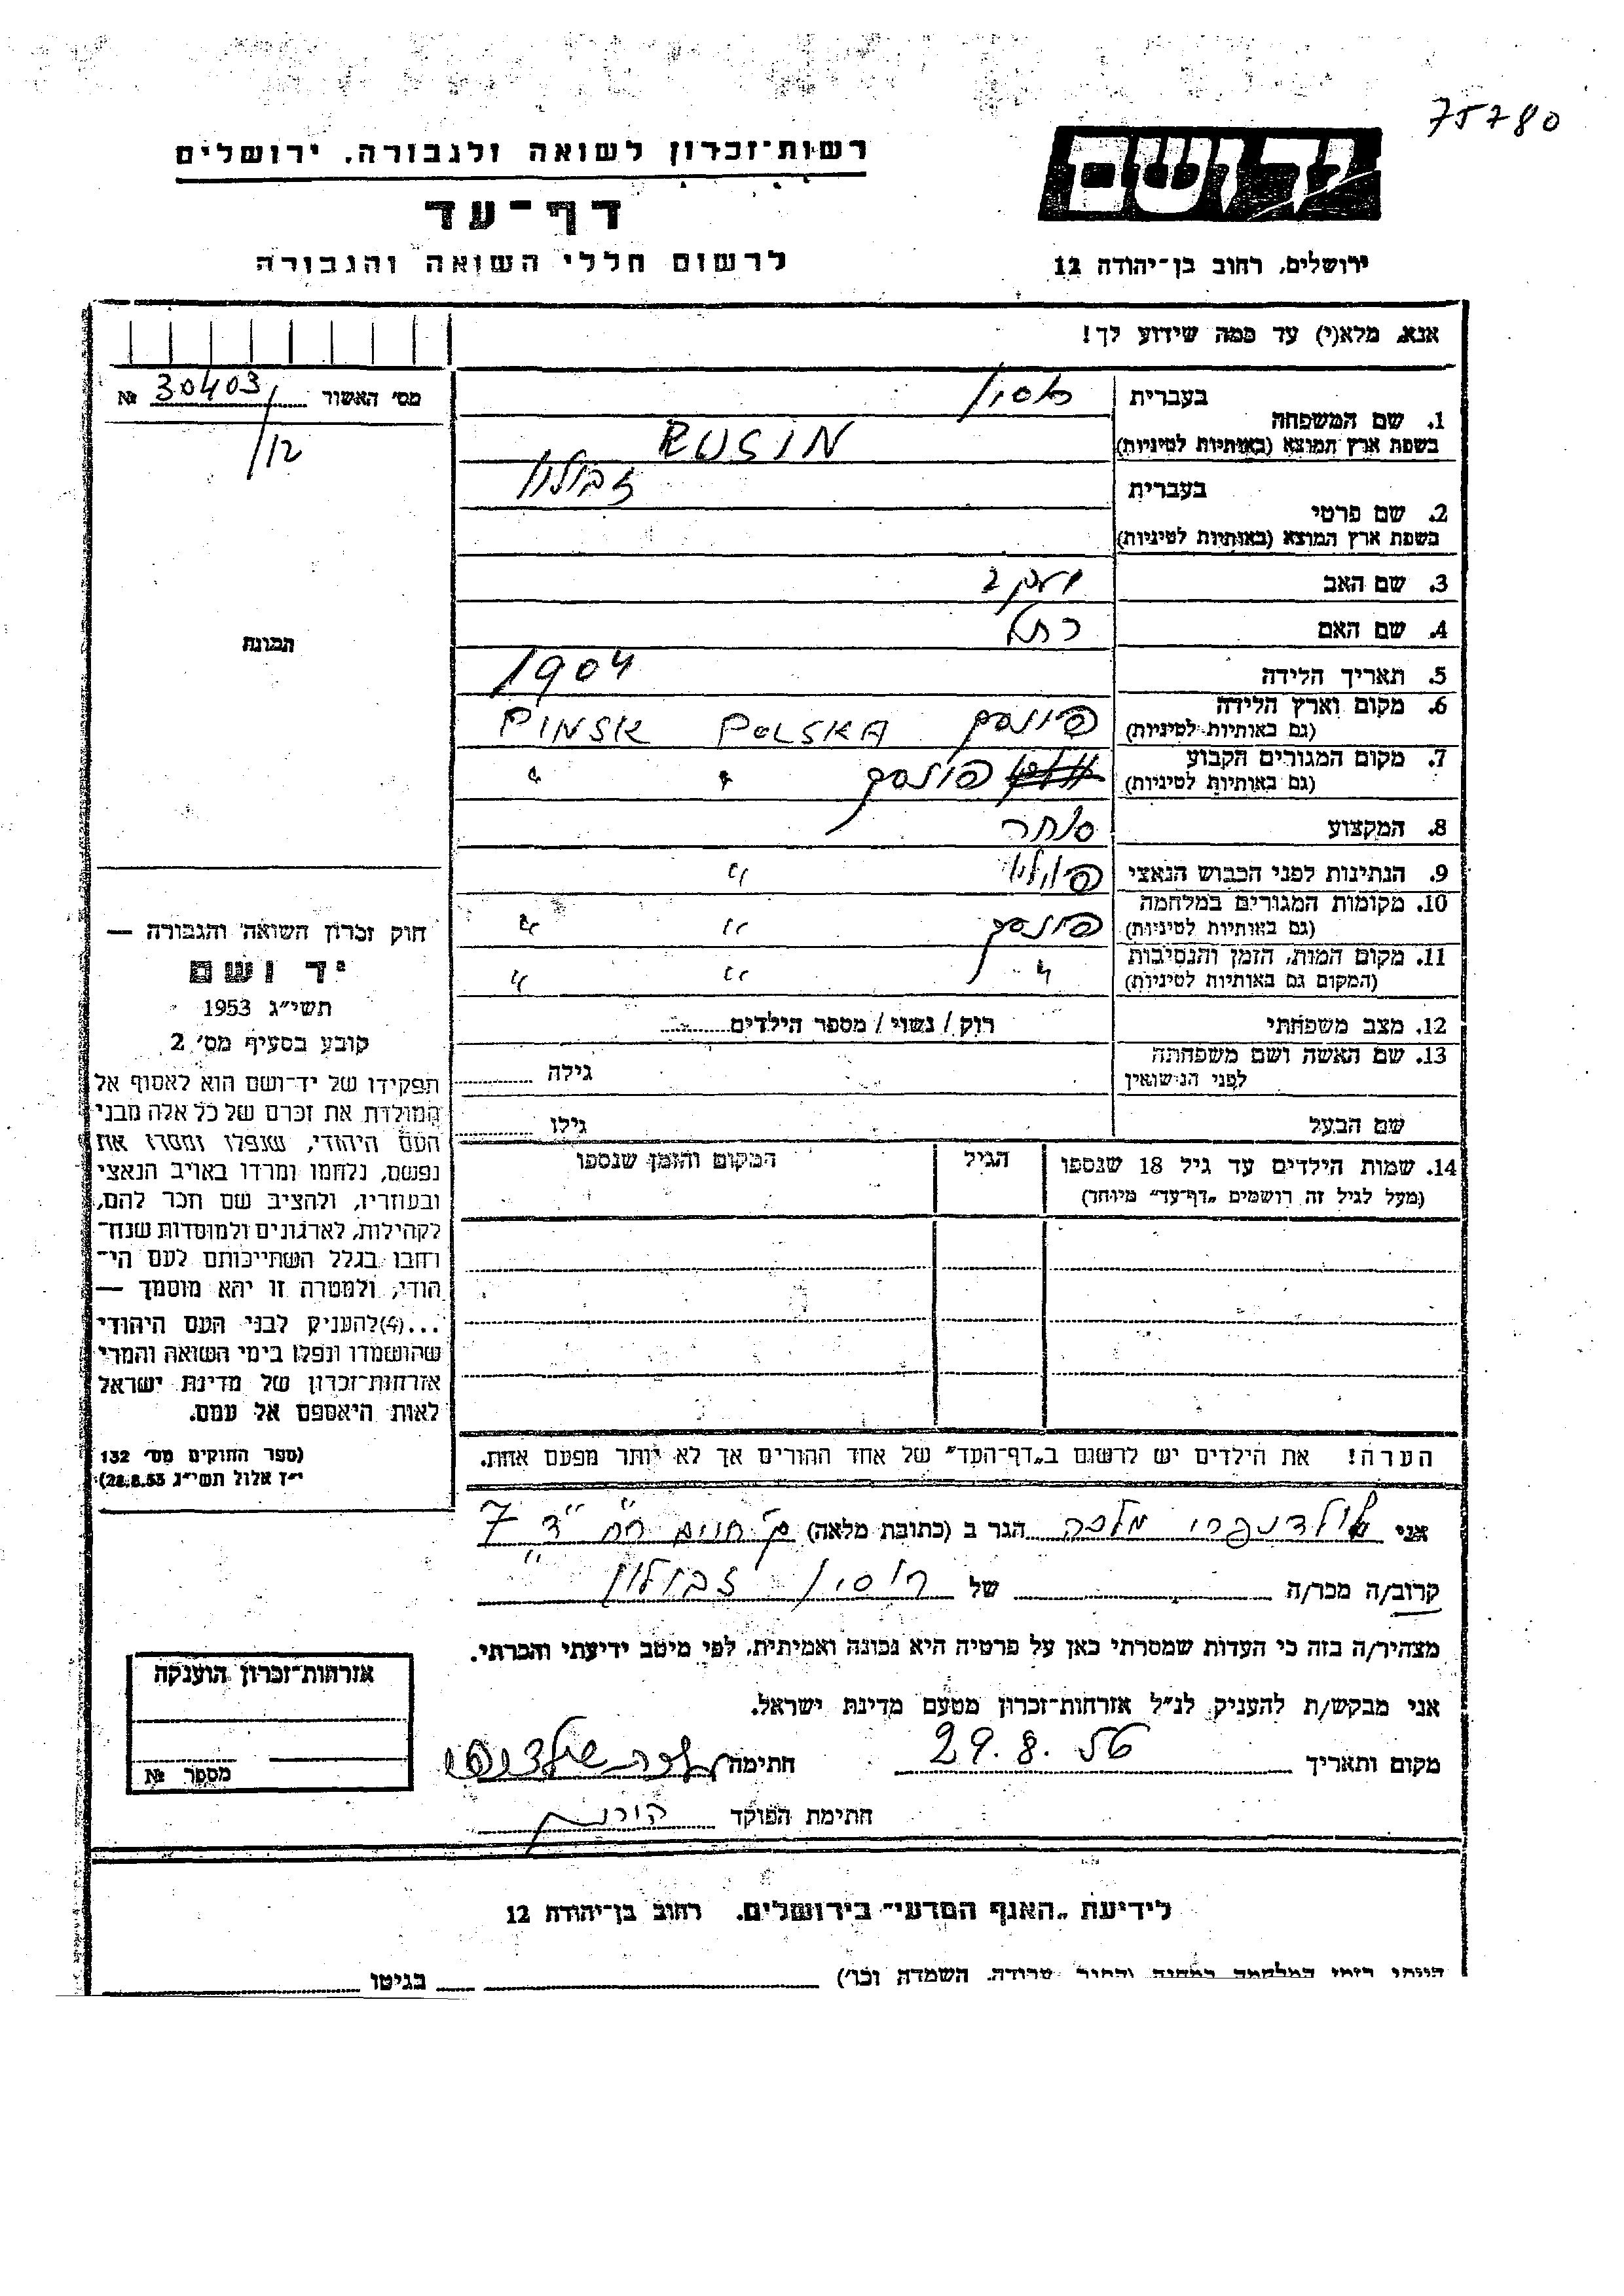 75780
יד ושם
ירושלים, רחוב בן־יהודה 12
רשות־זכרון לשואה ולגבורה, ירושלים
דף־עד
לרשום חללי השואה והגבורה
אנא, מלא(י) עד כמה שידוע לך!
מס׳ האשור 30403 №
/12
התמונה
1. שם המשפחה
בעברית רוסין
בשפת ארץ המוצא (באותיות לטיניות) RUSIN
2. שם פרטי
בעברית זבולון
בשפת ארץ המוצא (באותיות לטיניות)
3. שם האב יעקב
4. שם האם
5. תאריך הלידה 1904
6. מקום וארץ הלידה
(גם באותיות לטיניות) פינסק POLSKA PINSK
7. מקום המגורים הקבוע
(גם באותיות לטיניות) פינסק " "
8. המקצוע סוחר
9. הנתינות לפני הכבוש הנאצי "
10. מקומות המגורים במלחמה
(גם באותיות לטיניות) פינסק " "
11. מקום המות, הזמן והנסיבות
(המקום גם באותיות לטיניות) " " "
12. מצב משפחתי רוק / נשוי / מספר הילדים
13. שם האשה ושם משפחתה
לפני הנישואין גילה
שם הבעל גילו
14. שמות הילדים עד גיל 18 שנספו הגיל המקום והזמן שנספו
(מעל לגיל זה רושמים „דף־עד״ מיוחד)
הערה! את הילדים יש לרשום ב„דף־העד״ של אחד ההורים אך לא יותר מפעם אחת.
חוק זכרון השואה והגבורה —
יד ושם
תשי״ג 1953
קובע בסעיף מס׳ 2
תפקידו של יד־ושם הוא לאסוף אל
המולדת את זכרם של כל אלה מבני
העם היהודי, שנפלו ומסרו את
נפשם, נלחמו ומרדו באויב הנאצי
ובעוזריו, ולהציב שם וזכר להם,
לקהילות, לארגונים ולמוסדות שנח־
רחבו בגלל השתייכותם לעם הי־
הודי, ולמטרה זו יהא מוסמך —
...(4) להעניק לבני העם היהודי
שהושמדו ונפלו בימי השואה והמרי
אזרחות־זכרון של מדינת ישראל
לאות היאספם אל עמם.
(ספר החוקים מס׳ 132
י״ז אלול תשי״ג 28.8.53)
אני מלכה הגר ב (כתובת מלאה) 7
קרוב/ה מכר/ה של רוסין זבולון
מצהיר/ה בזה כי העדות שמסרתי כאן על פרטיה היא נכונה ואמיתית, לפי מיטב ידיעתי והכרתי.
אני מבקש/ת להעניק לנ״ל אזרחות־זכרון מטעם מדינת ישראל.
מקום ותאריך 29.8.56 חתימה
חתימת הפוקד
אזרחות־זכרון הוענקה
מספר №
לידיעת „האגף המדעי״ בירושלים, רחוב בן־יהודה 12
השמדה וכו׳) בגיטו